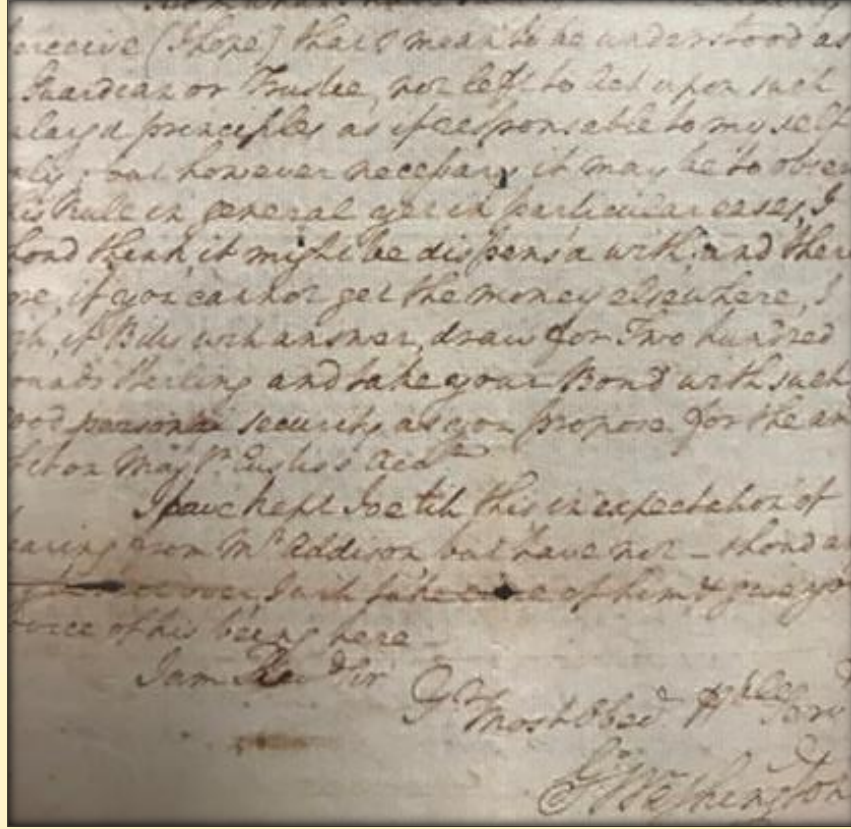 erceive (I hope) that I mean to be understood as
Guardian or Trustee, not left to act upon such
nlarg'd principles as if responsable to my self
nly; but however necessary it may be to observ
his Rule in general yet in particular cases, I
houd think it might be dispens'd with; and there
ore, if you cannot get the money elsewhere, I
if Bills will answer, draw for Two hundred
ounds Sterling and take your Bond with such
ood personal security as you propose for the am
I have kept Joe till this in expectation of
earing from Mr. Addison, but have not – shoud
over I will take care of him & give yo
dvice of his being here –
I am Sir
Yr
Most Obedt Hble Servt
Go Washington